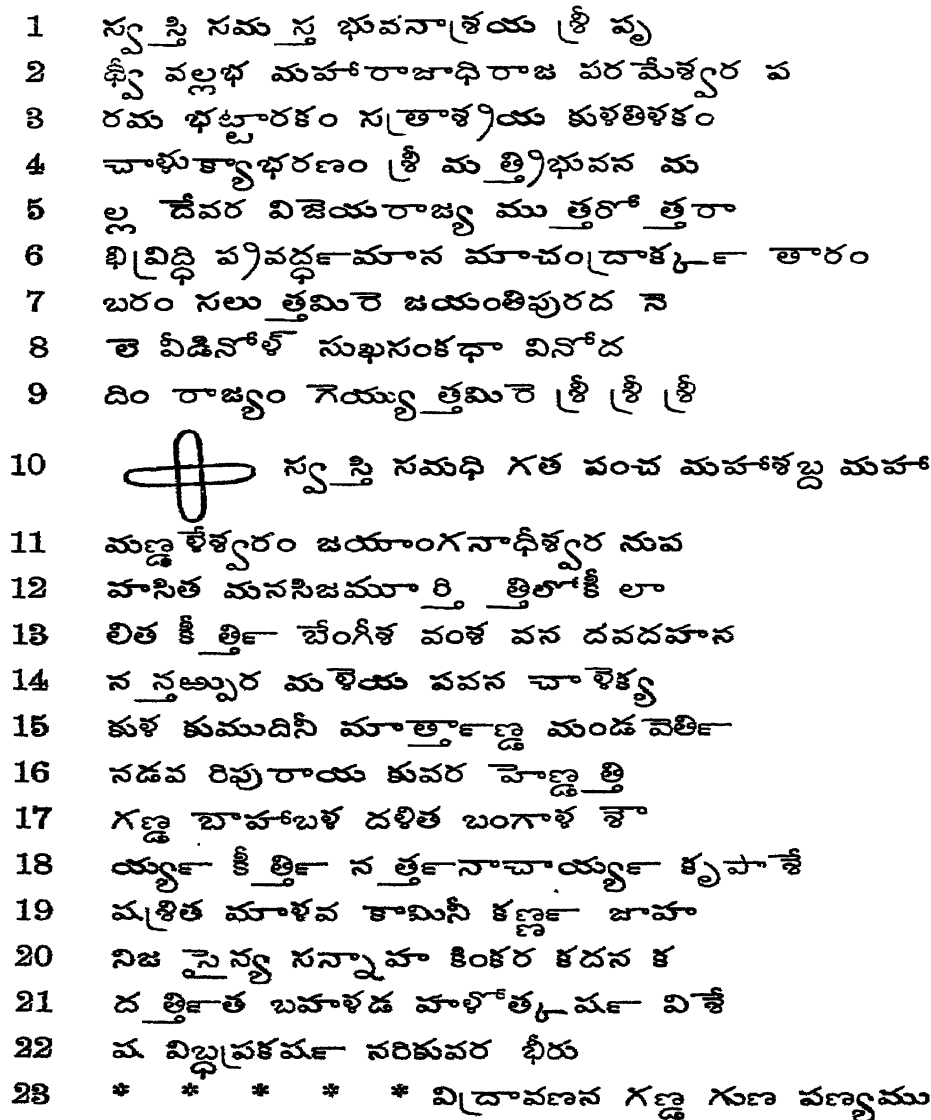 1 స్వస్తి సమస్త భువనాశ్రయ శ్రీ పృ
2 థ్వీ వల్లభ మహారాజాధిరాజ పరమేశ్వర ప
3 రమ భట్టారకం సత్రాశ్రియ కుళతిళకం
4 చాళుక్యాభరణం శ్రీ మత్త్రిభువన మ
5 ల్ల దేవర విజెయరాజ్య ముత్తరోత్తరా
6 భివ్రిద్ధి ప్రివర్ద్ధమాన మాచంద్రార్క్క తారం
7 బరం సలుత్తమిరె జయంతిపురద నె
8 లె వీడినోళ్ సుఖసంకథా వినోద
9 దిం రాజ్యం గెయ్యుత్తమిరె శ్రీ శ్రీ శ్రీ
10 స్వస్తి సమధి గత పంచ మహాశబ్ద మహా
11 మణ్డళేశ్వరం జయాంగనాధీశ్వర నుప
12 హసిత మనసిజమూర్తి త్తిలోకీ లా
13 లిత కీర్త్తి బేంగీశ వంశ వన దవదహన
14 నన్తఱ్పుర మళెయ పవన చాళెక్య
15 కుళ కుముదినీ మార్త్తాణ్డ మండవెర్తి
16 నడవ రిపురాయ కువర హెణ్డత్తి
17 గణ్డ బాహాబళ దళిత బంగాళ శౌ
18 ర్య్య కీర్త్తి నర్త్తనాచార్య్య కృపాశే
19 షశ్రిత మాళవ కామినీ కర్ణ్న జాహ
20 నిజ సైన్య సన్నాహ కింకర కదన క
21 దర్త్తిత బహళడ హళోత్కర్ష విశే
22 ష విబ్ధప్రకర్ష నరికువర భీరు
23 * * * * * విద్రావణన గణ్డ గుణ పణ్యము